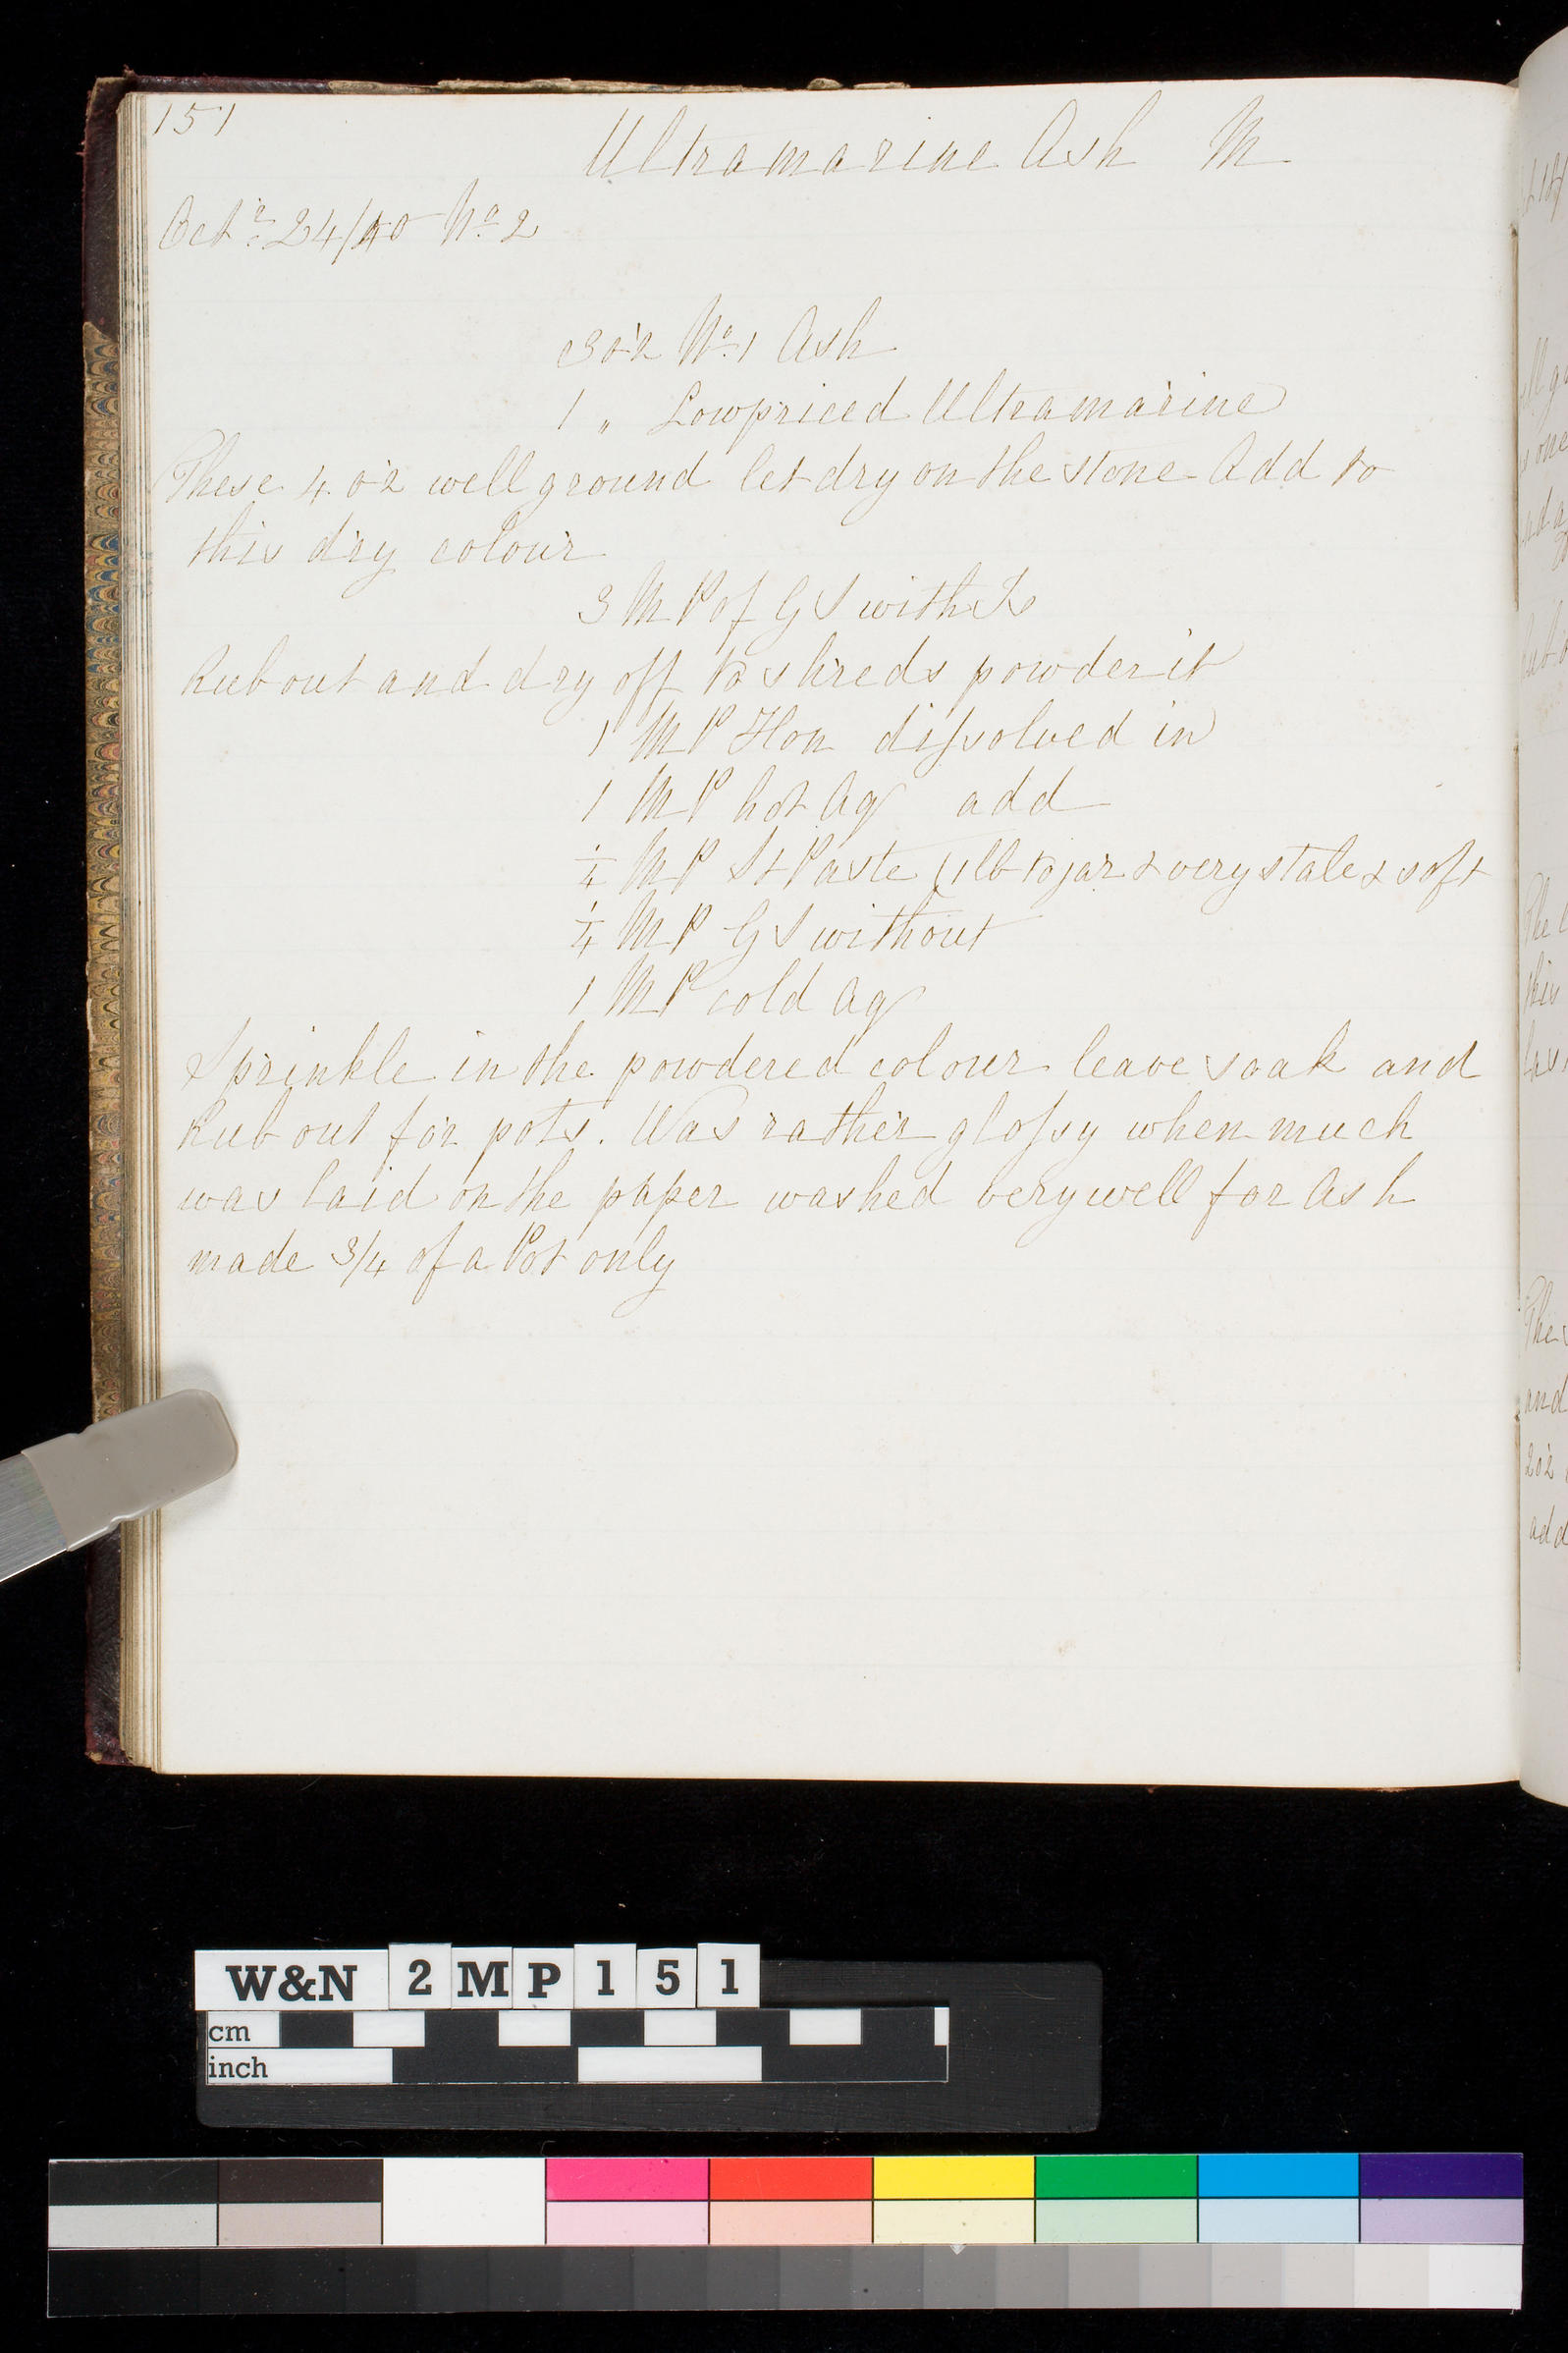 151
Ultramarine Ash M
Octr 24/40 No 2
3 oz No 1 Ash
1 " Lowpriced Ultramarine
These 4 oz well ground let dry on the stone Add to
this dry colour
3 MP of GS with Is
Rub out and dry off to shreds powder it
1 MP Hon dissolved in
1 MP hot Aq add
1/4 MP St Paste (1lb to jar & very stale & soft
1/4 MP GS without
1 MP cold Aq
Sprinkle in the powdered colour leave soak and
Rub out for pots. Was rather glossy when much
was laid on the paper washed very well for Ash
made 3/4 of a Pot only
W&N 2MP151
cm
inch